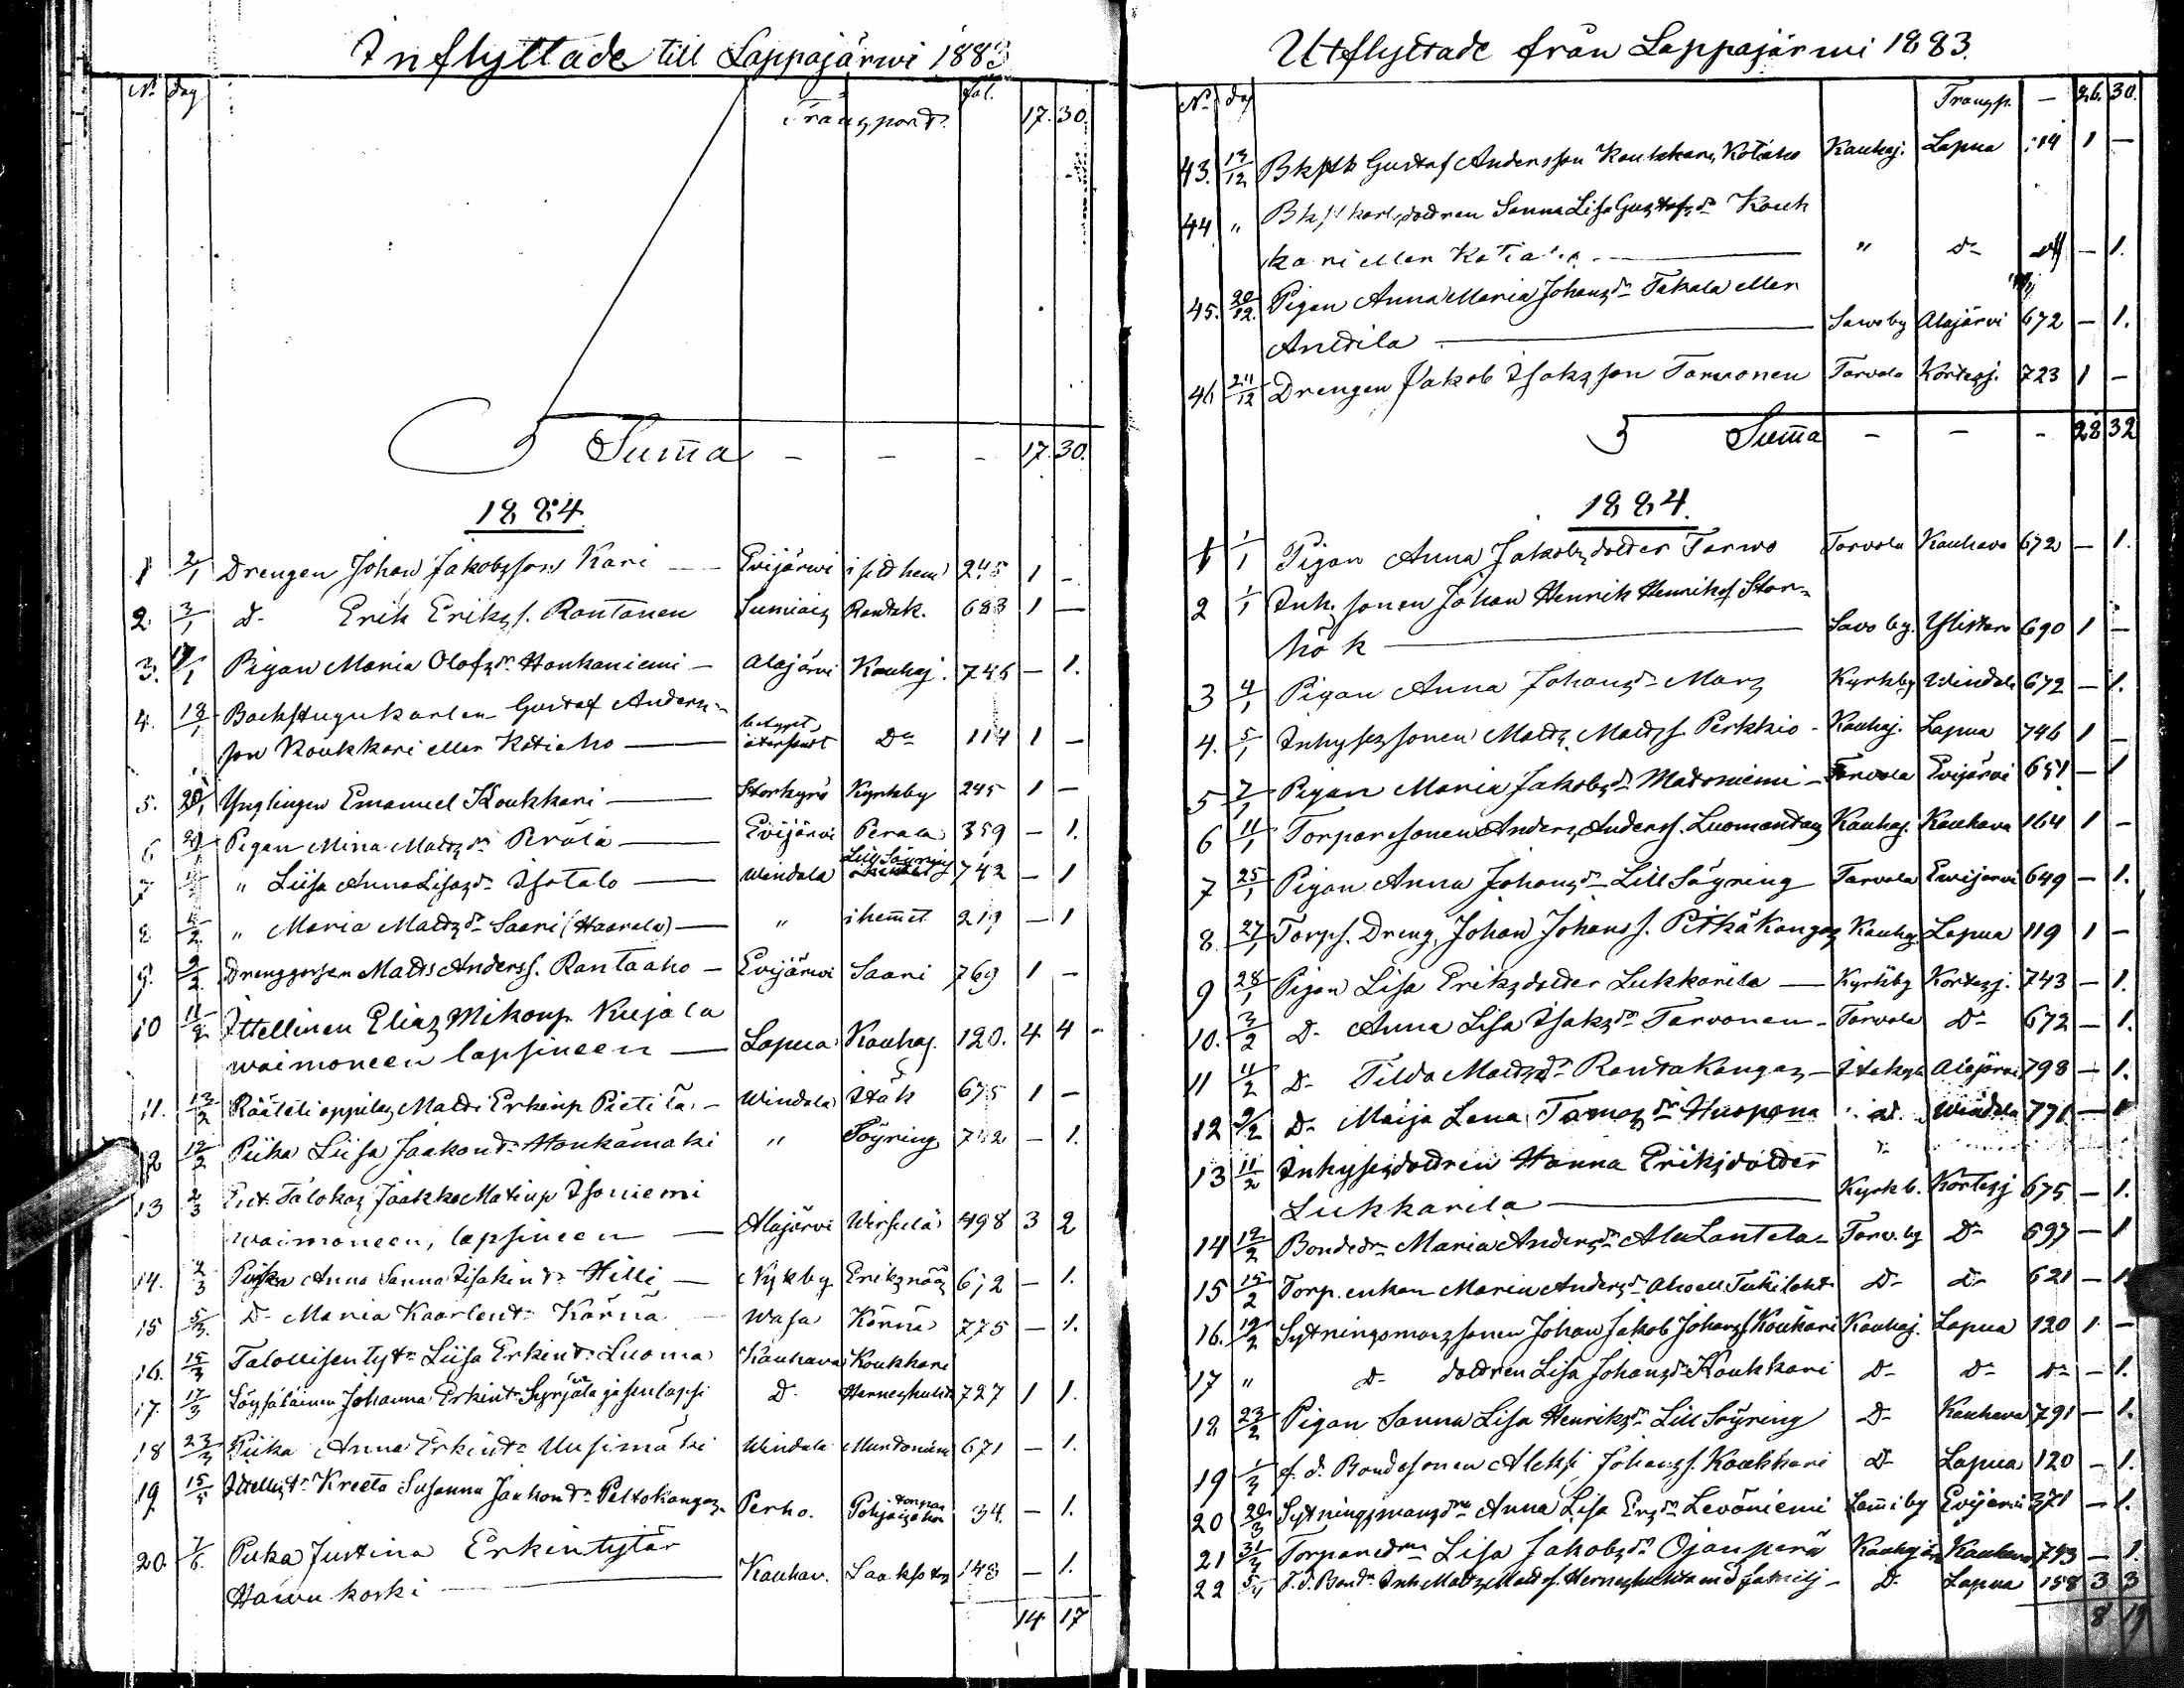 Inflyttade till Lappajärwi 1883
No dag fol.
Transport. 17. 30.
Summa - - - 17. 30.
1884
1 2/1 Drengen Johan Jakobsson Kari - - Evijärwi i sid hem 245 1 -
2. 3/1 D- Erik Eriks s. Rantanen Sumiais Rantak. 683 1 -
3. 1 Pigan Maria Olofsdr Honkaniemi - Alajärvi Kauhaj. 745 - 1.
4. 18/1 Backstugukarlen Gustaf Anders-
son Koukkari eller Kotiaho betyget återsändt Do 114 1 -
5. 20/1 Ynglingen Emanuel Koukkari Storkyrö Kyrkby 245 1 -
6 Pigan Mina Mattsdr Perälä Evijärvi Perälä 359 - 1.
7 " Liisa Anna Lisasdr Isotalo Windala Lill Söyring 742 - 1
8 /2 " Maria Mattsdr Saari (Haarala) " i hemmet 219 - 1
9. 9/2 Drenggossen Matts Anderss. Rantaaho - Evijärwi Saari 769 1 -
10 11/2 Ittellinen Elias Mikonp. Kujala
waimoneen lapsineen Lapua Kauhaj. 120. 4 4
11. 13/2 Räätäli oppilas Matti Erkinp Pietilä - Windala Itäk 675 1 -
12 Piika Liisa Jaakondr Honkamäki " Söyring 742 - 1.
13 2/3 Ent. Talokas Jaakko Matinp Isoniemi
waimoneen, lapsineen Alajärvi Wirsula 498 3 2
14. 2/3 Piika Anna Sanna Iisakindr Hilli - Nykby Eriksnääs 672 - 1.
15 5/3. D- Maria Kaarlentr Kärnä Wasa Kärnä 775 - 1.
16. 15/3 Talollisen tytr Liisa Erkintr Luoma Kauhava Koukkari
17. 17/3 Löysäläinen Johanna Erkintr Syrjälä ja sen lapsi D- Herneshuhta 727 1 1.
18 23/3 Piika Anna Erkintr Uusimäki Windala 671 - 1.
19 15/5 Ittellistr Kreeta Susanna Jaakontr Peltokangas - Perho. torpar Pohjaisaho 34. - 1.
20. 7/6. Piika Justina Erkintytär
Hawukoski Kauhav. Sääkst 148 - 1.
14 17
Utflyttade från Lappajärwi 1883.
No dag Transp. - 26. 30.
43. 13/12 Bkstk Gustaf Andersson Koukkari, Kotiaho Kauhaj. Lapua 114 1 -
44 " Bkst karlsdottren Sanna Lisa Gustafsdr Kouk
kari eller Kotiaho " D- - 1.
45. 20/12. Pigan Anna Maria Johansdr Takala eller
Anttila Sawoby Alajärvi 672 - 1.
46 24/12 Drengen Jakob Isaksson Tarvonen Tarvola Kortesj. 723 1 -
Summa - - - 28 32
1884.
1 1/1 Pigan Anna Jakobsdotter Tarwo Tarvola Kauhava 672 - 1.
2 1/1 Inh. sonen Johan Henrik Henrikss Stor-
hök Savo by. Ylistaro 690 1 -
3 4/1 Pigan Anna Johansdr Mars Kyrkby Windala 672 - 1.
4. 5/1 Inhysessonen Matts Mattss Perkkiö - Kauhaj. Lapua 746 1 -
5 7/1 Pigan Maria Jakobsdr Matoniemi - Tarvola Evijärvi 651 - 1
6 11/1 Torparesonen Anders Anderss. Luomantaus Kauhaj. Kauhava 164 1 -
7 25/1 Pigan Anna Johansdr Lill Söyring Tarvola Ewijärvi 649 - 1.
8. 27/1 Torps. Dreng. Johan Johans s. Pitkäkangas Kauhaj. Lapua 119 1 -
9 28/1 Pigan Lisa Eriksdotter Lukkarila Kyrkby Kortesj. 743 - 1.
10. 3/2 D- Anna Lisa Isaksdr Tarvonen - Tarvola D- 672 - 1.
11 11/2 D- Tilda Mattsdr Rantakangas - Itäkylä Alajärvi 798 - 1.
12 9/2 D- Maija Lena Tomasdr Huopana D. Windala 771 - 1
13 11/2 Inhysesdottren Hanna Eriksdotter
Lukkarila Kyrkb. Kortesj 675 - 1.
14 12/2 Bondedr Maria Andersdr Ala Lantela - Tarv. by D- 697 - 1
15 15/2 Torp.enkan Maria Andersdr D- D- 621 - 1
16. 19/2 Sytningsmanssonen Johan Jakob Johanss Koukari Kauhaj. Lapua 120 1 -
17 " D- dottren Lisa Johansdr Koukkari D- D- D- - 1.
18 23/2 Pigan Sanna Lisa Henriksdr Lill Söyring D- Kauhava 791 - 1.
19 1/3 f. d. Bondesonen Aleksi Johans s. Koukkari D- Lapua 120 - 1.
20 20/3 Sytningsmansdr Anna Lisa Ersdr Levöniemi Lammiby Evijärvi 371 - 1.
21 31/3 Torparedrn Lisa Jakobsdr Ojanperä Kauhajär Kauhava 743 - 1.
22 5/4 f. d. Bond. Inh Matts Matts s. Herneshuhta md familj - D- Lapua 158 3 3
8 19